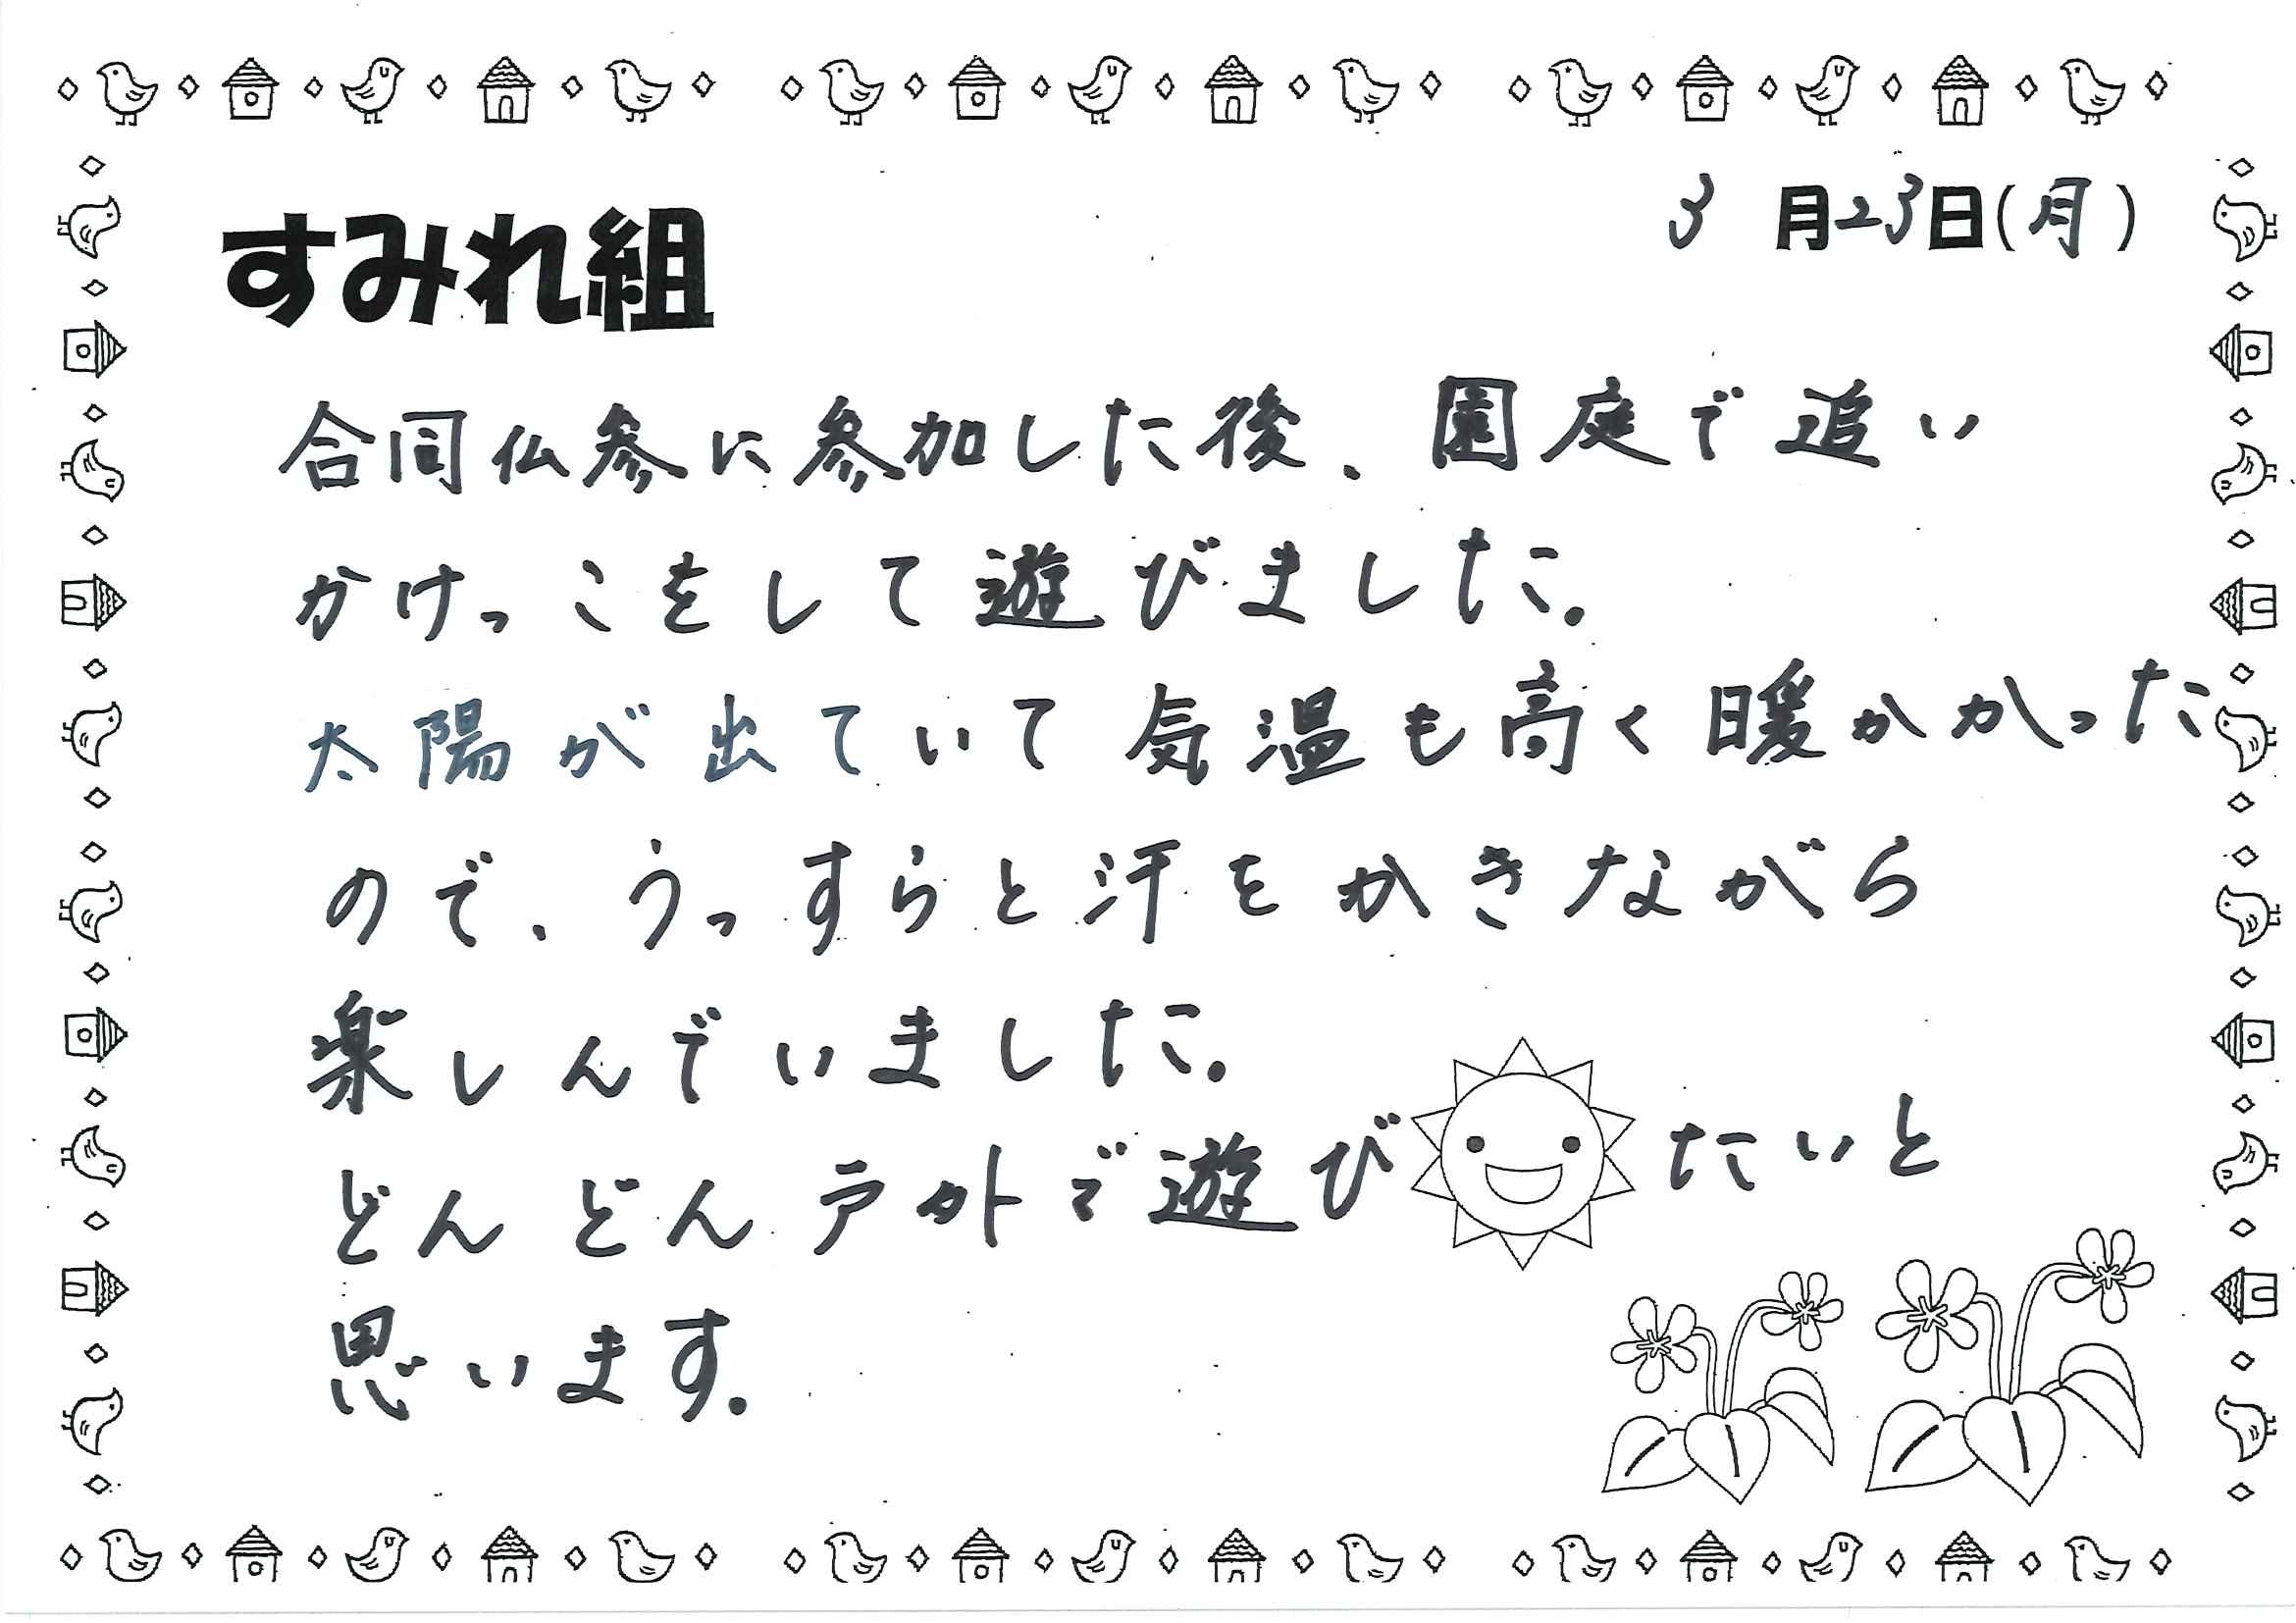 3月23日(月)
すみれ組
合同仏参に参加した後、園庭で追い
かけっこをして遊びました。
太陽が出ていて気温も高く暖かかった
ので、うっすらと汗をかきながら
楽しんでいました。
どんどん戸外で遊びたいと
思います。